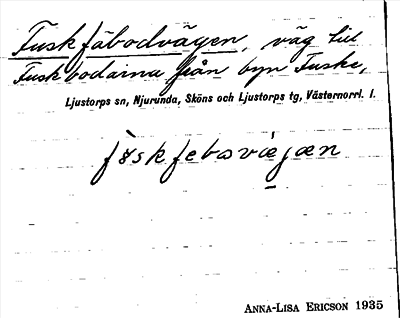 Fuskfäbodvägen, väg till
Fuskbodarna från byn Fuske,
Ljustorps sn, Njurunda, Sköns och Ljustorps tg, Västernorrl. l.
ANNA-LISA ERICSON 1935